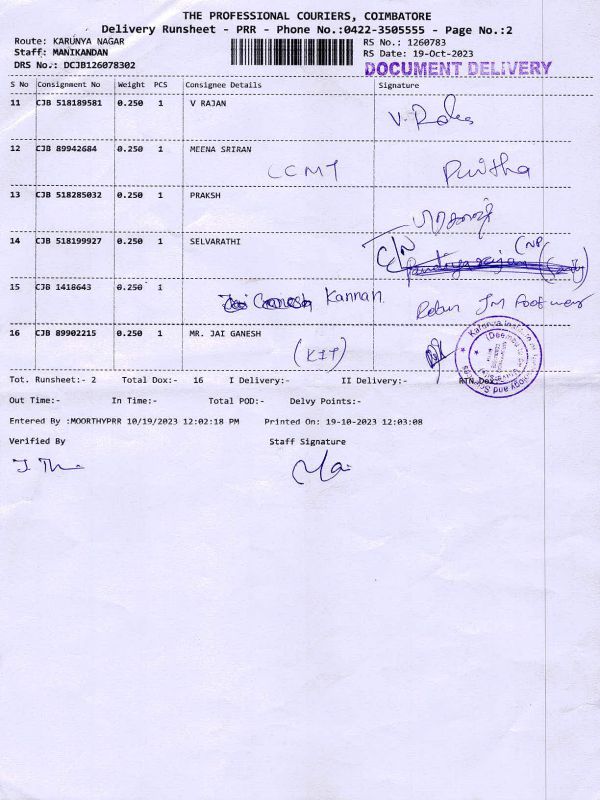 THE PROFESSIONAL COURIERS, COIMBATORE
Delivery Runsheet - PRR - Phone No.:0422-3505555 - Page No.:2
Route: KARUNYA NAGAR RS No.: 1260783
Staff: MANIKANDAN RS Date: 19-Oct-2023
DRS No.: DCJB126078302 DOCUMENT DELIVERY
S No Consignment No Weight PCS Consignee Details Signature
11 CJB 518189581 0.250 1 V RAJAN V. 
12 CJB 89942684 0.250 1 MEENA SRIRAN
CCMT
13 CJB 518285032 0.250 1 PRAKSH
14 CJB 518199927 0.250 1 SELVARATHI
15 CJB 1418643 0.250 1
Kannan
16 CJB 89902215 0.250 1 MR. JAI GANESH
(KIT)
Tot. Runsheet:- 2 Total Dox:- 16 I Delivery:- II Delivery:- RTN Dox:-
Out Time:- In Time:- Total POD:- Delvy Points:-
Entered By :MOORTHYPRR 10/19/2023 12:02:18 PM Printed On: 19-10-2023 12:03:08
Verified By Staff Signature